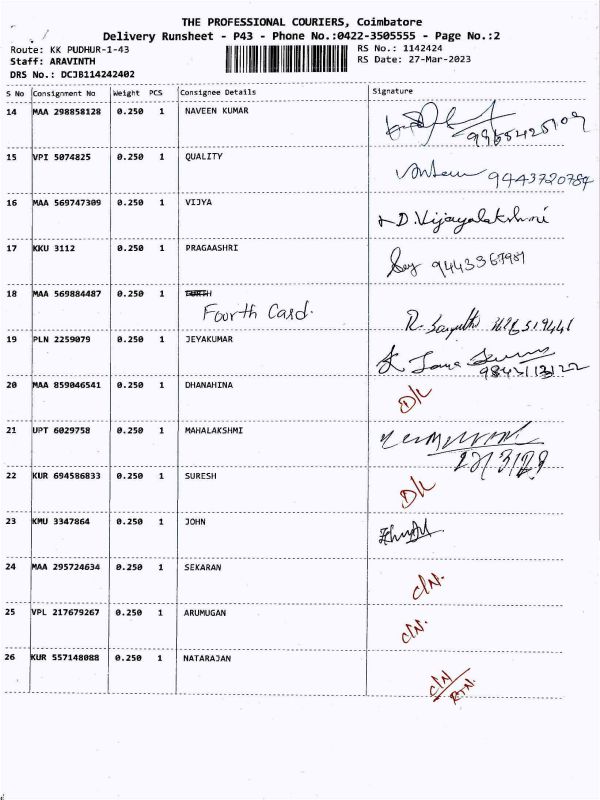 THE PROFESSIONAL COURIERS, Coimbatore
Delivery Runsheet - P43 - Phone No.:0422-3505555 - Page No.:2
Route: KK PUDHUR-1-43 RS No.: 1142424
Staff: ARAVINTH RS Date: 27-Mar-2023
DRS No.: DCJB114242402
S No Consignment No Weight PCS Consignee Details Signature
14 MAA 298858128 0.250 1 NAVEEN KUMAR
15 VPI 5074825 0.250 1 QUALITY 9443720784
16 MAA 569747309 0.250 1 VIJYA D. Vijayalakshmi
17 KKU 3112 0.250 1 PRAGAASHRI
18 MAA 569884487 0.250 1 FOURTH
Fourth Card.
19 PLN 2259079 0.250 1 JEYAKUMAR
20 MAA 859046541 0.250 1 DHANAHINA D/L
21 UPT 6029758 0.250 1 MAHALAKSHMI
22 KUR 694586833 0.250 1 SURESH D/L
23 KMU 3347864 0.250 1 JOHN
24 MAA 295724634 0.250 1 SEKARAN C/N.
25 VPL 217679267 0.250 1 ARUMUGAN C/N.
26 KUR 557148088 0.250 1 NATARAJAN C/N
RTN.